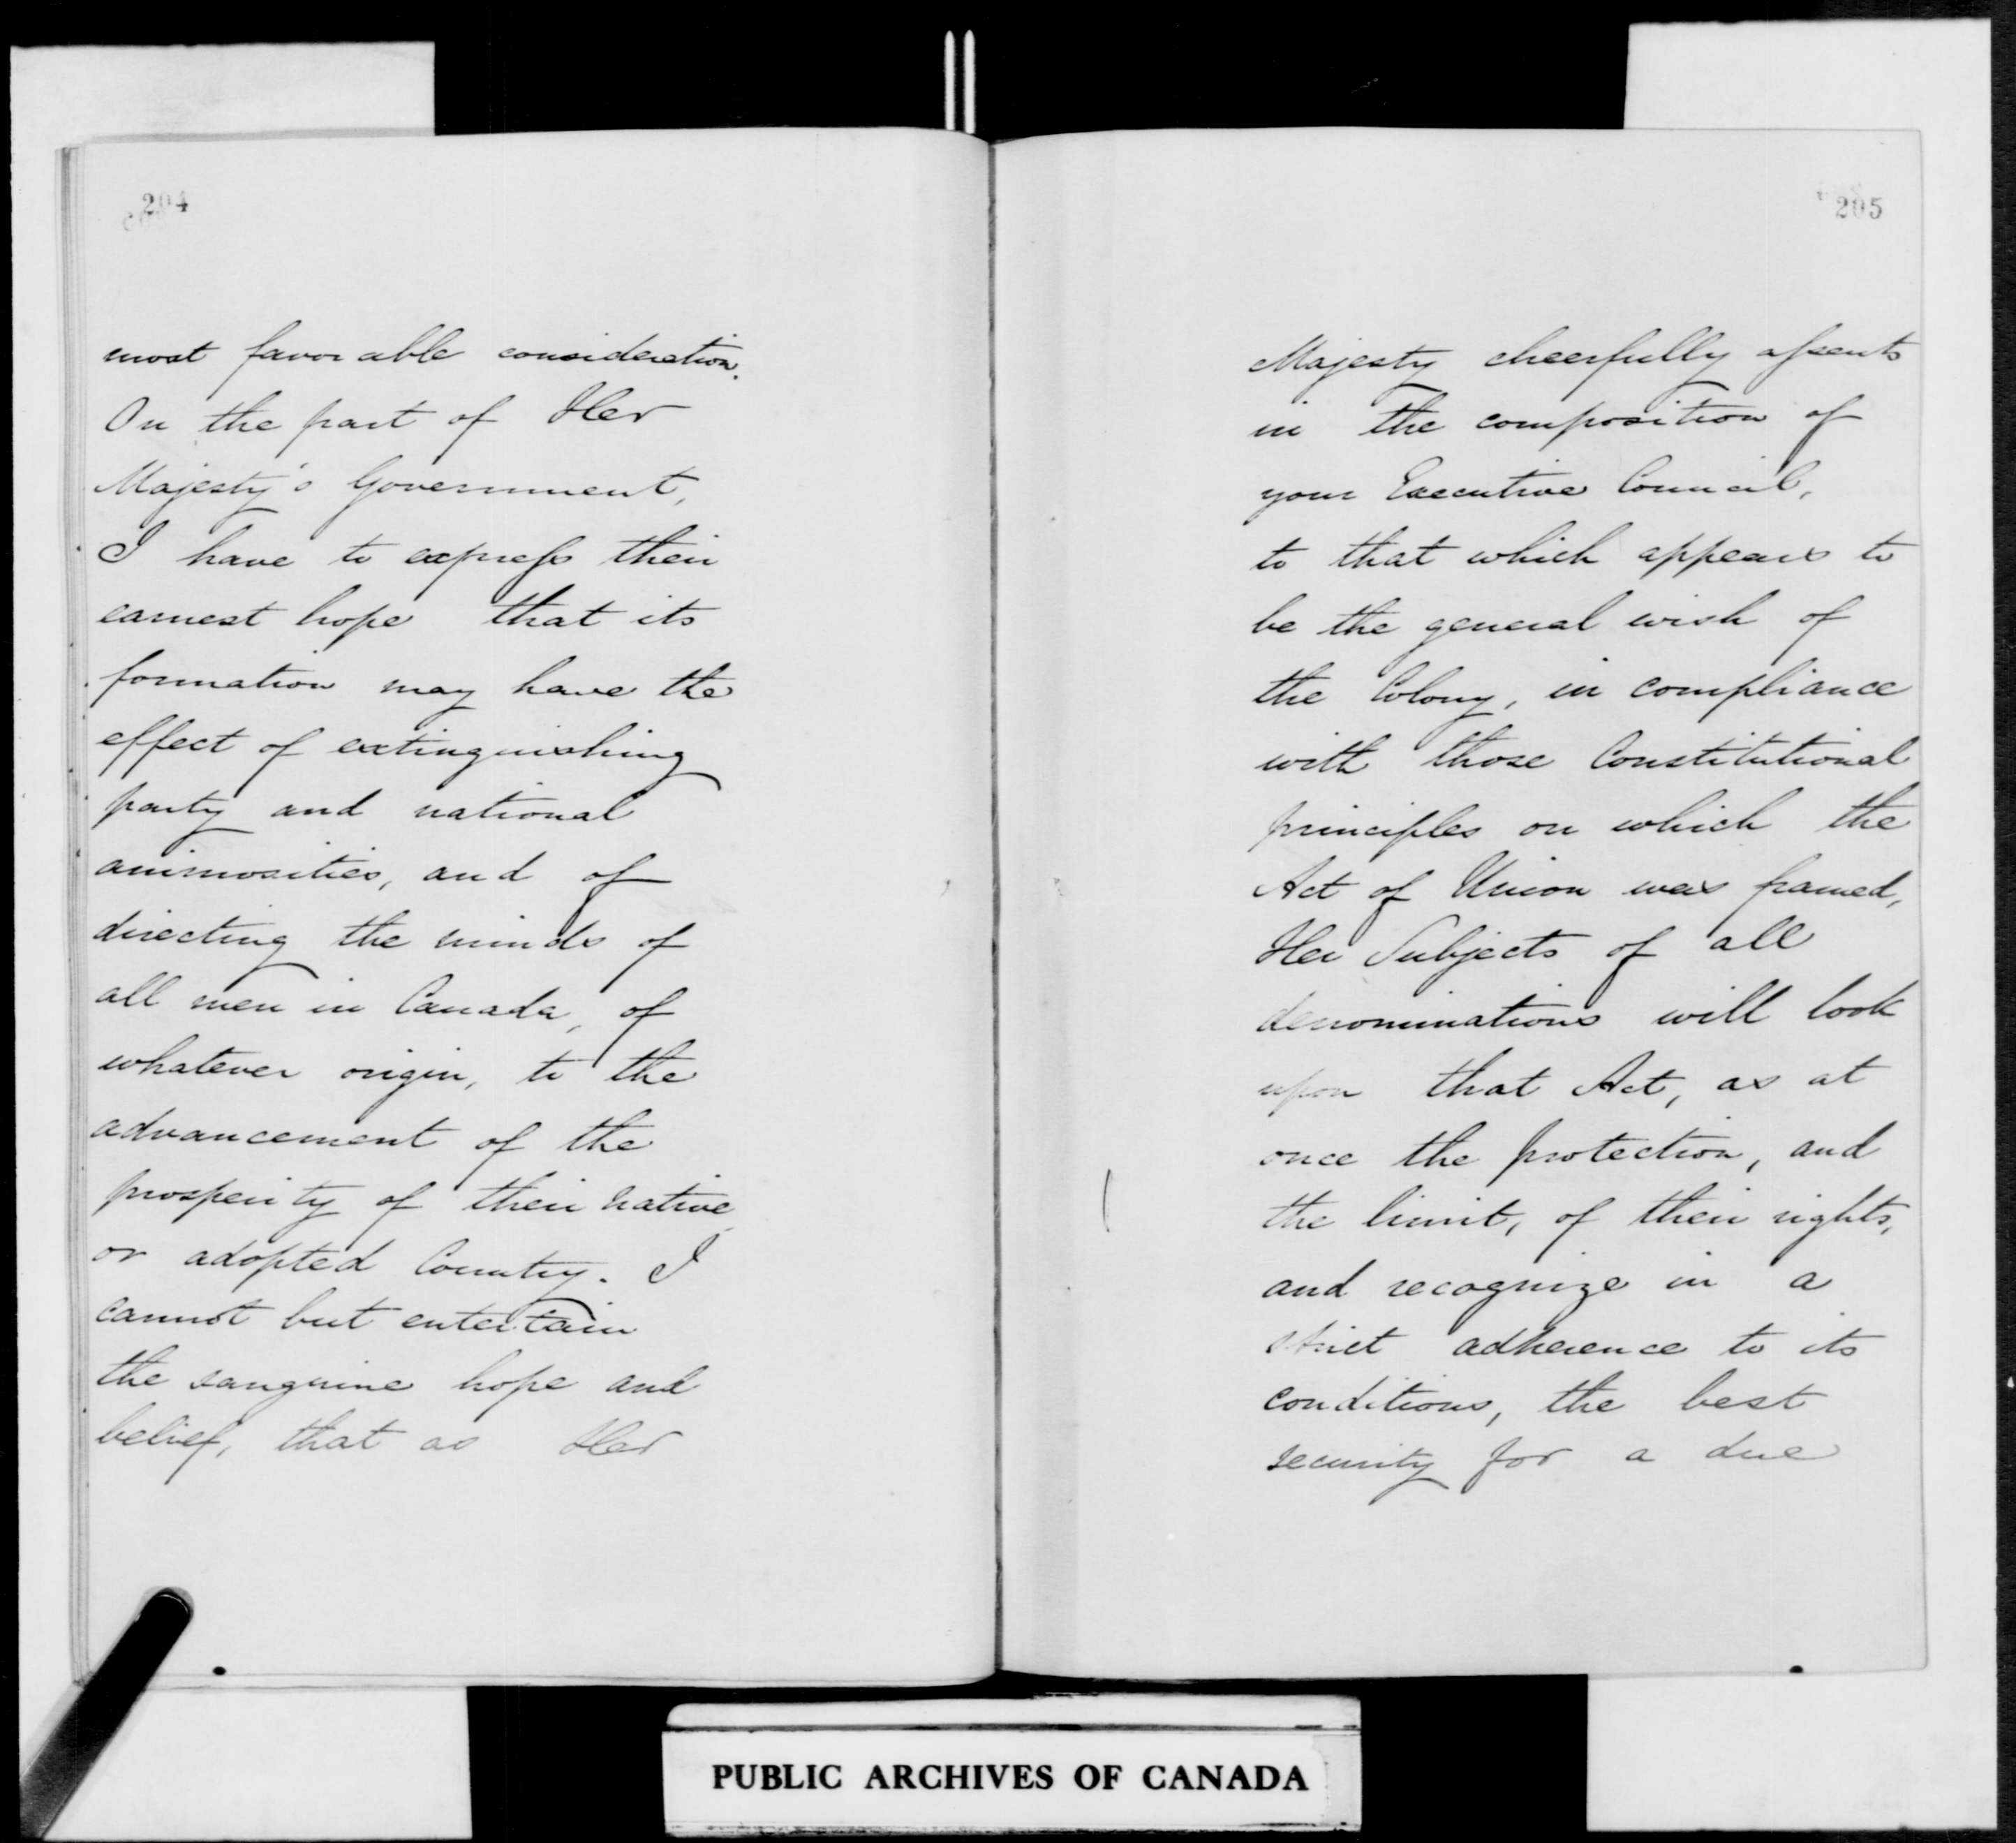 204
most favorable consideration.
On the part of Her
Majesty's Government,
I have to express their
earnest hope that its
formation may have the
effect of extinguishing
party and national
animosities, and of
directing the minds of
all men in Canada, of
whatever origin, to the
advancement of the
prosperity of their native
or adopted Country. I
cannot but entertain
the sanguine hope and
belief, that as Her
205
Majesty cheerfully assents
in the composition of
your Executive Council,
to that which appears to
be the general wish of
the Colony, in compliance
with those Constitutional
principles on which the
Act of Union was framed,
Her Subjects of all
denominations will look
upon that Act, as at
once the protection, and
the limit, of their rights,
and recognize in a
strict adherence to its
conditions, the best
security for a due
PUBLIC ARCHIVES OF CANADA